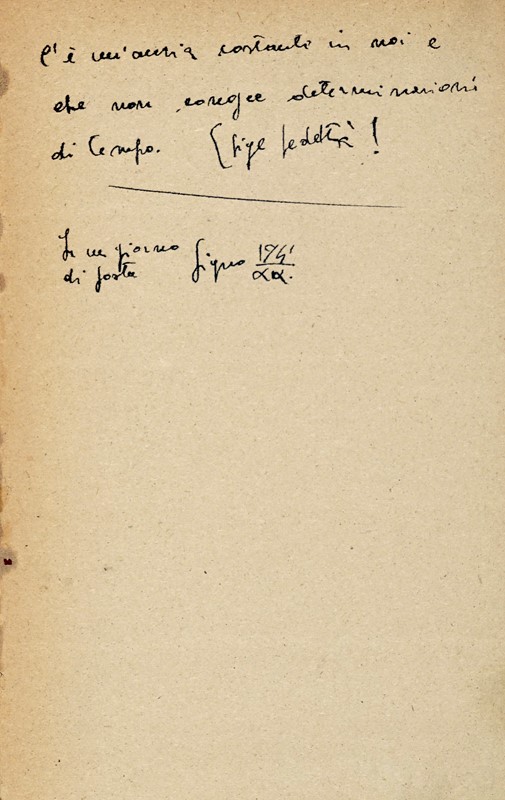 C'è un'ansia costante in noi e
che non conosce determinazioni
di tempo. Esige fedeltà!
In un giorno
di festa Giugno 1941
XX.